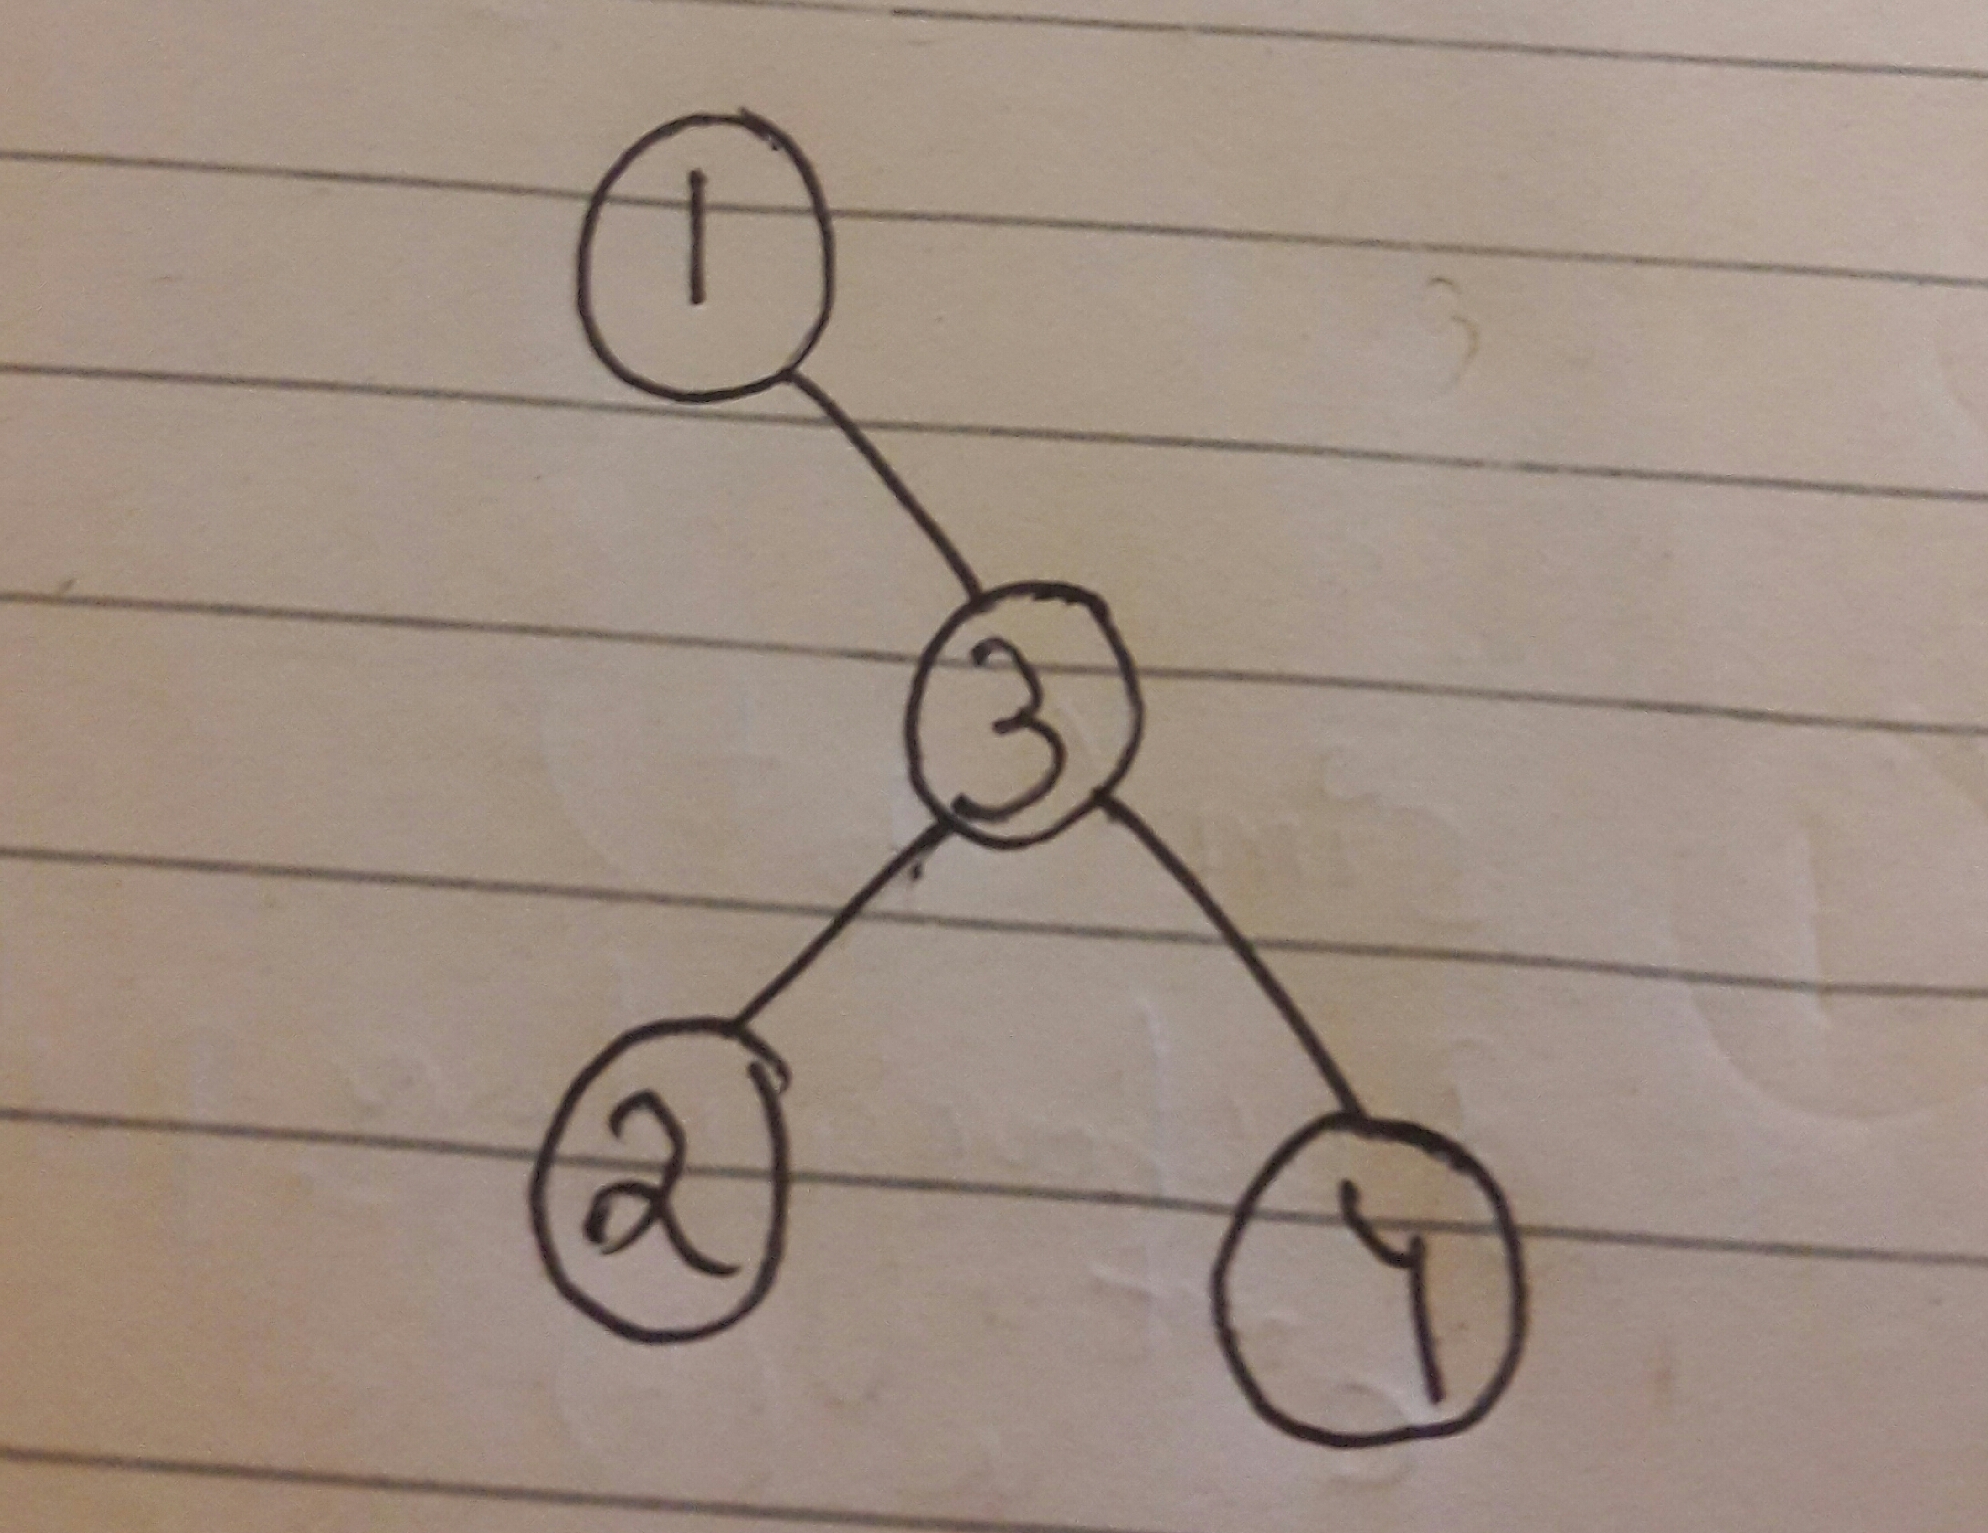 1
3
2 4